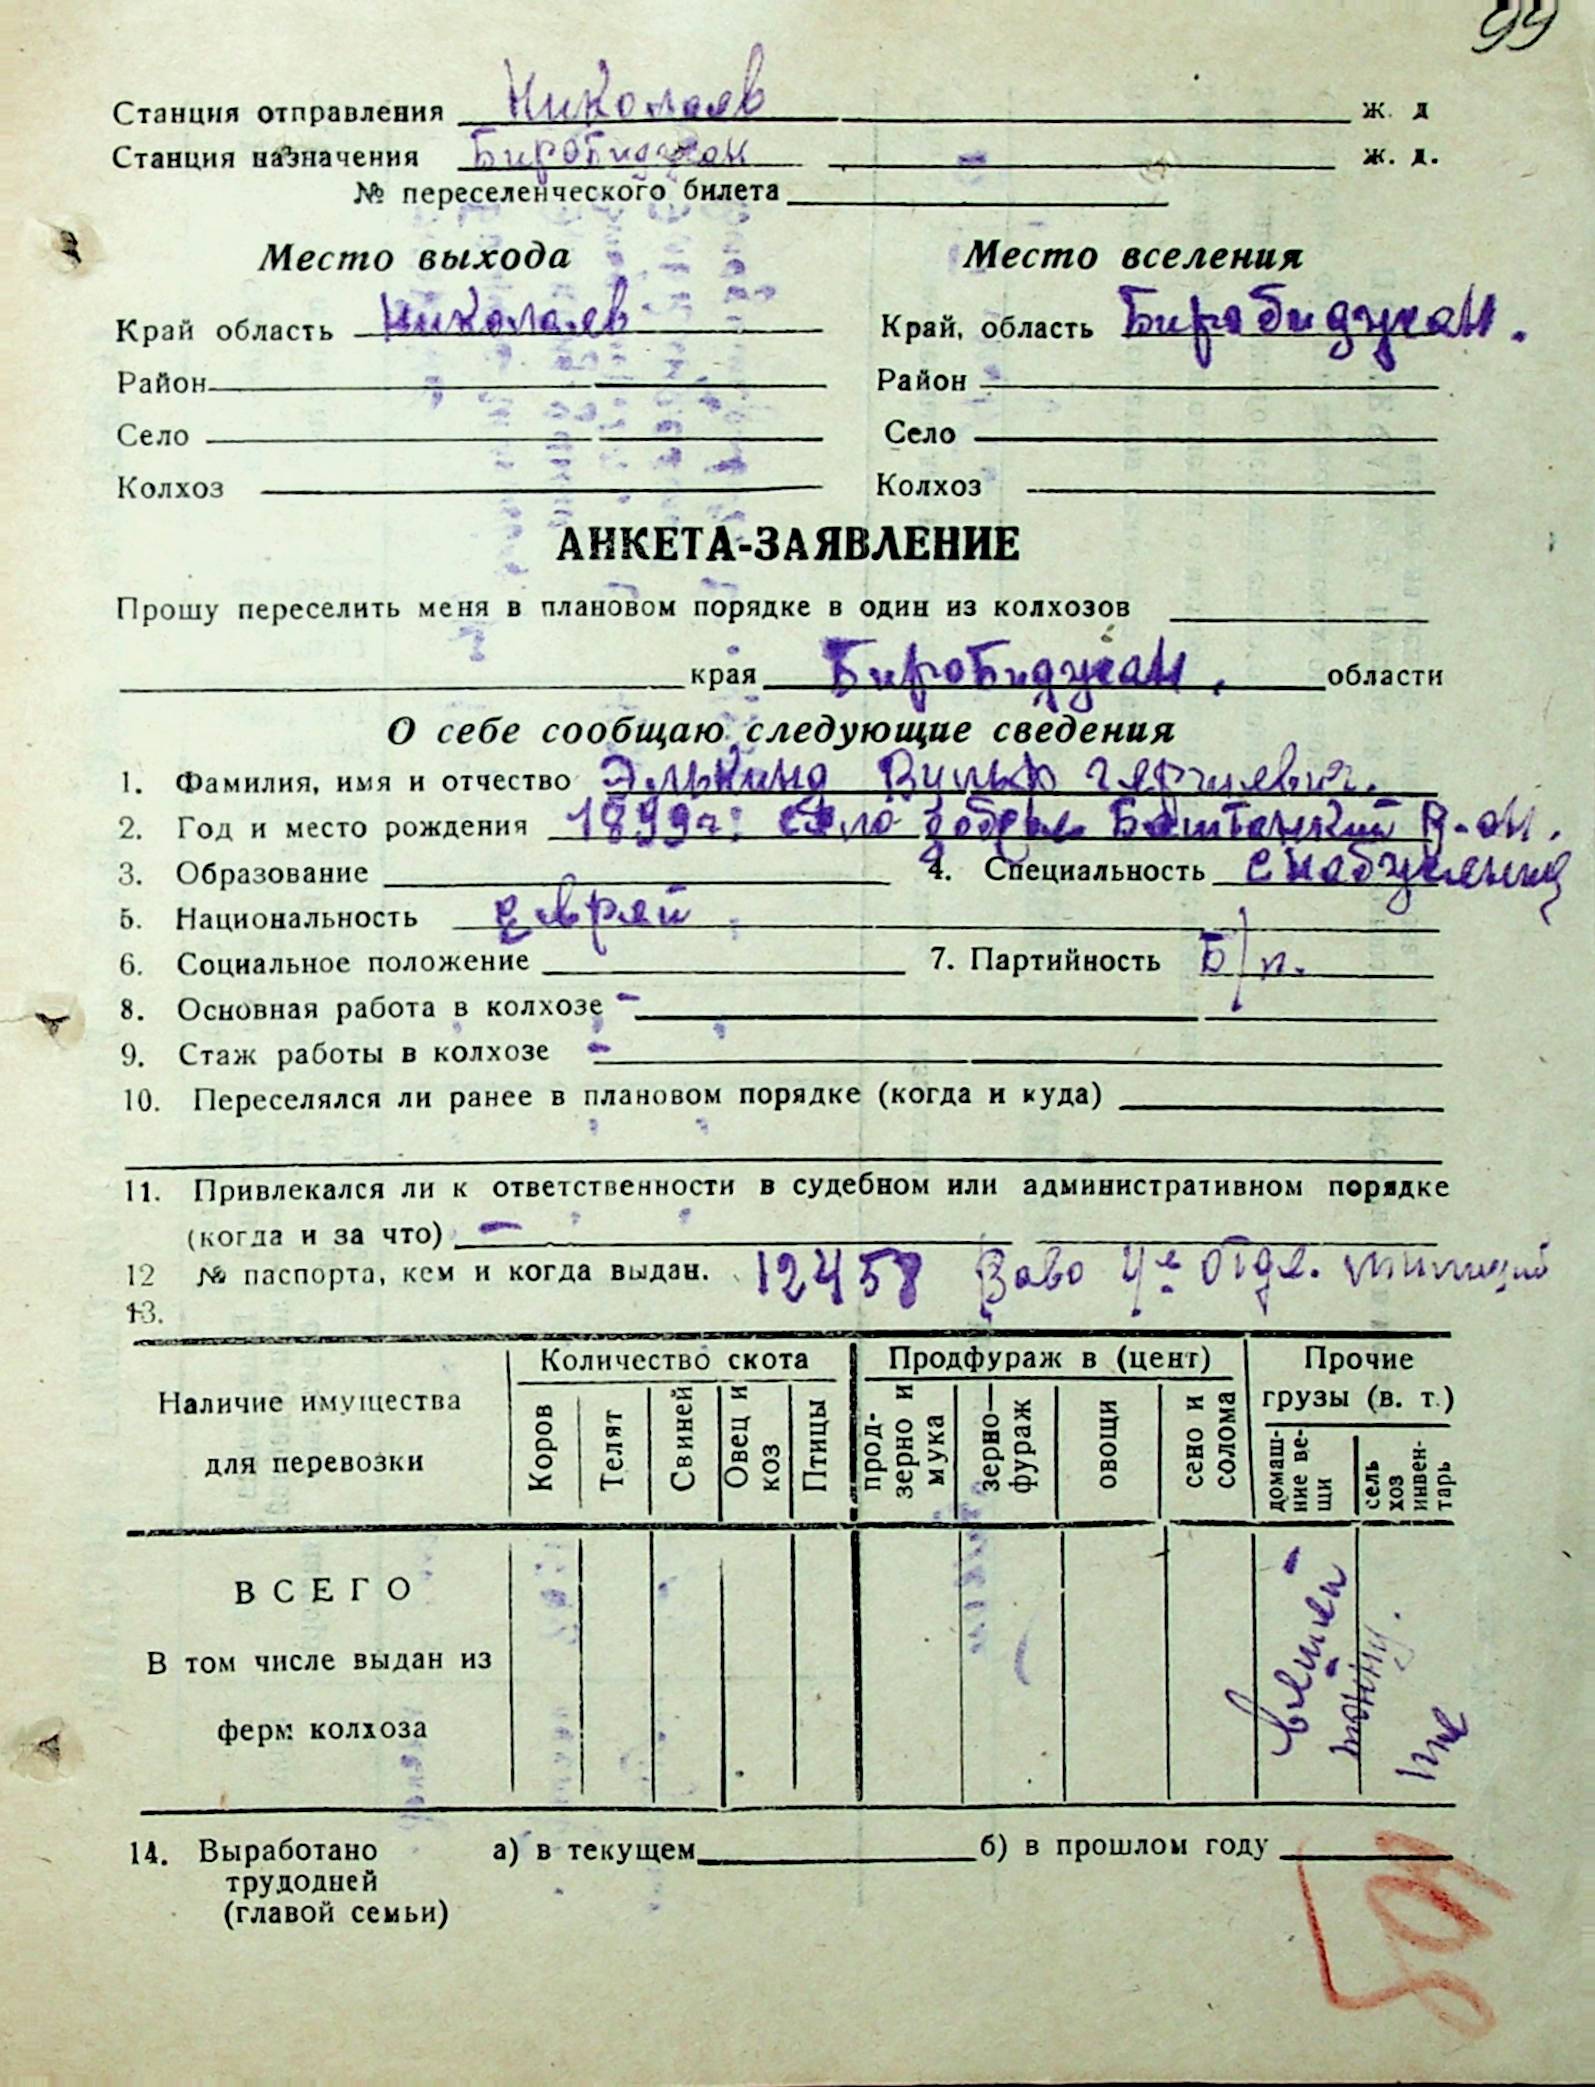 99
Станция отправления Николаев ж. д
Станция назначения Биробиджан ж. д.
№ переселенческого билета
Место выхода Место вселения
Край область Николаев Край, область Биробиджан.
Район Район
Село Село
Колхоз Колхоз
АНКЕТА-ЗАЯВЛЕНИЕ
Прошу переселить меня в плановом порядке в один из колхозов
края Биробиджан, области
О себе сообщаю следующие сведения
1. Фамилия, имя и отчество Элькинд Вульф Гершевич.
2. Год и место рождения 1899 г. село Добрая Баштанский Р-он.
3. Образование 4. Специальность снабженец
5. Национальность еврей
6. Социальное положение 7. Партийность Б/п.
8. Основная работа в колхозе -
9. Стаж работы в колхозе -
10. Переселялся ли ранее в плановом порядке (когда и куда)
11. Привлекался ли к ответственности в судебном или административном порядке
(когда и за что) -
12 № паспорта, кем и когда выдан. 12458 4е отдел. милиции
13.
Наличие имущества для перевозки
Количество скота Продфураж в (цент) Прочие грузы (в. т.)
Коров Телят Свиней Овец и коз Птицы прод-зерно и мука зерно—фураж овощи сено и солома домаш-ние ве-щи сель хоз инвен-тарь
ВСЕГО
В том числе выдан из
ферм колхоза
вещей
тонну.
14. Выработано а) в текущем б) в прошлом году
трудодней
(главой семьи)